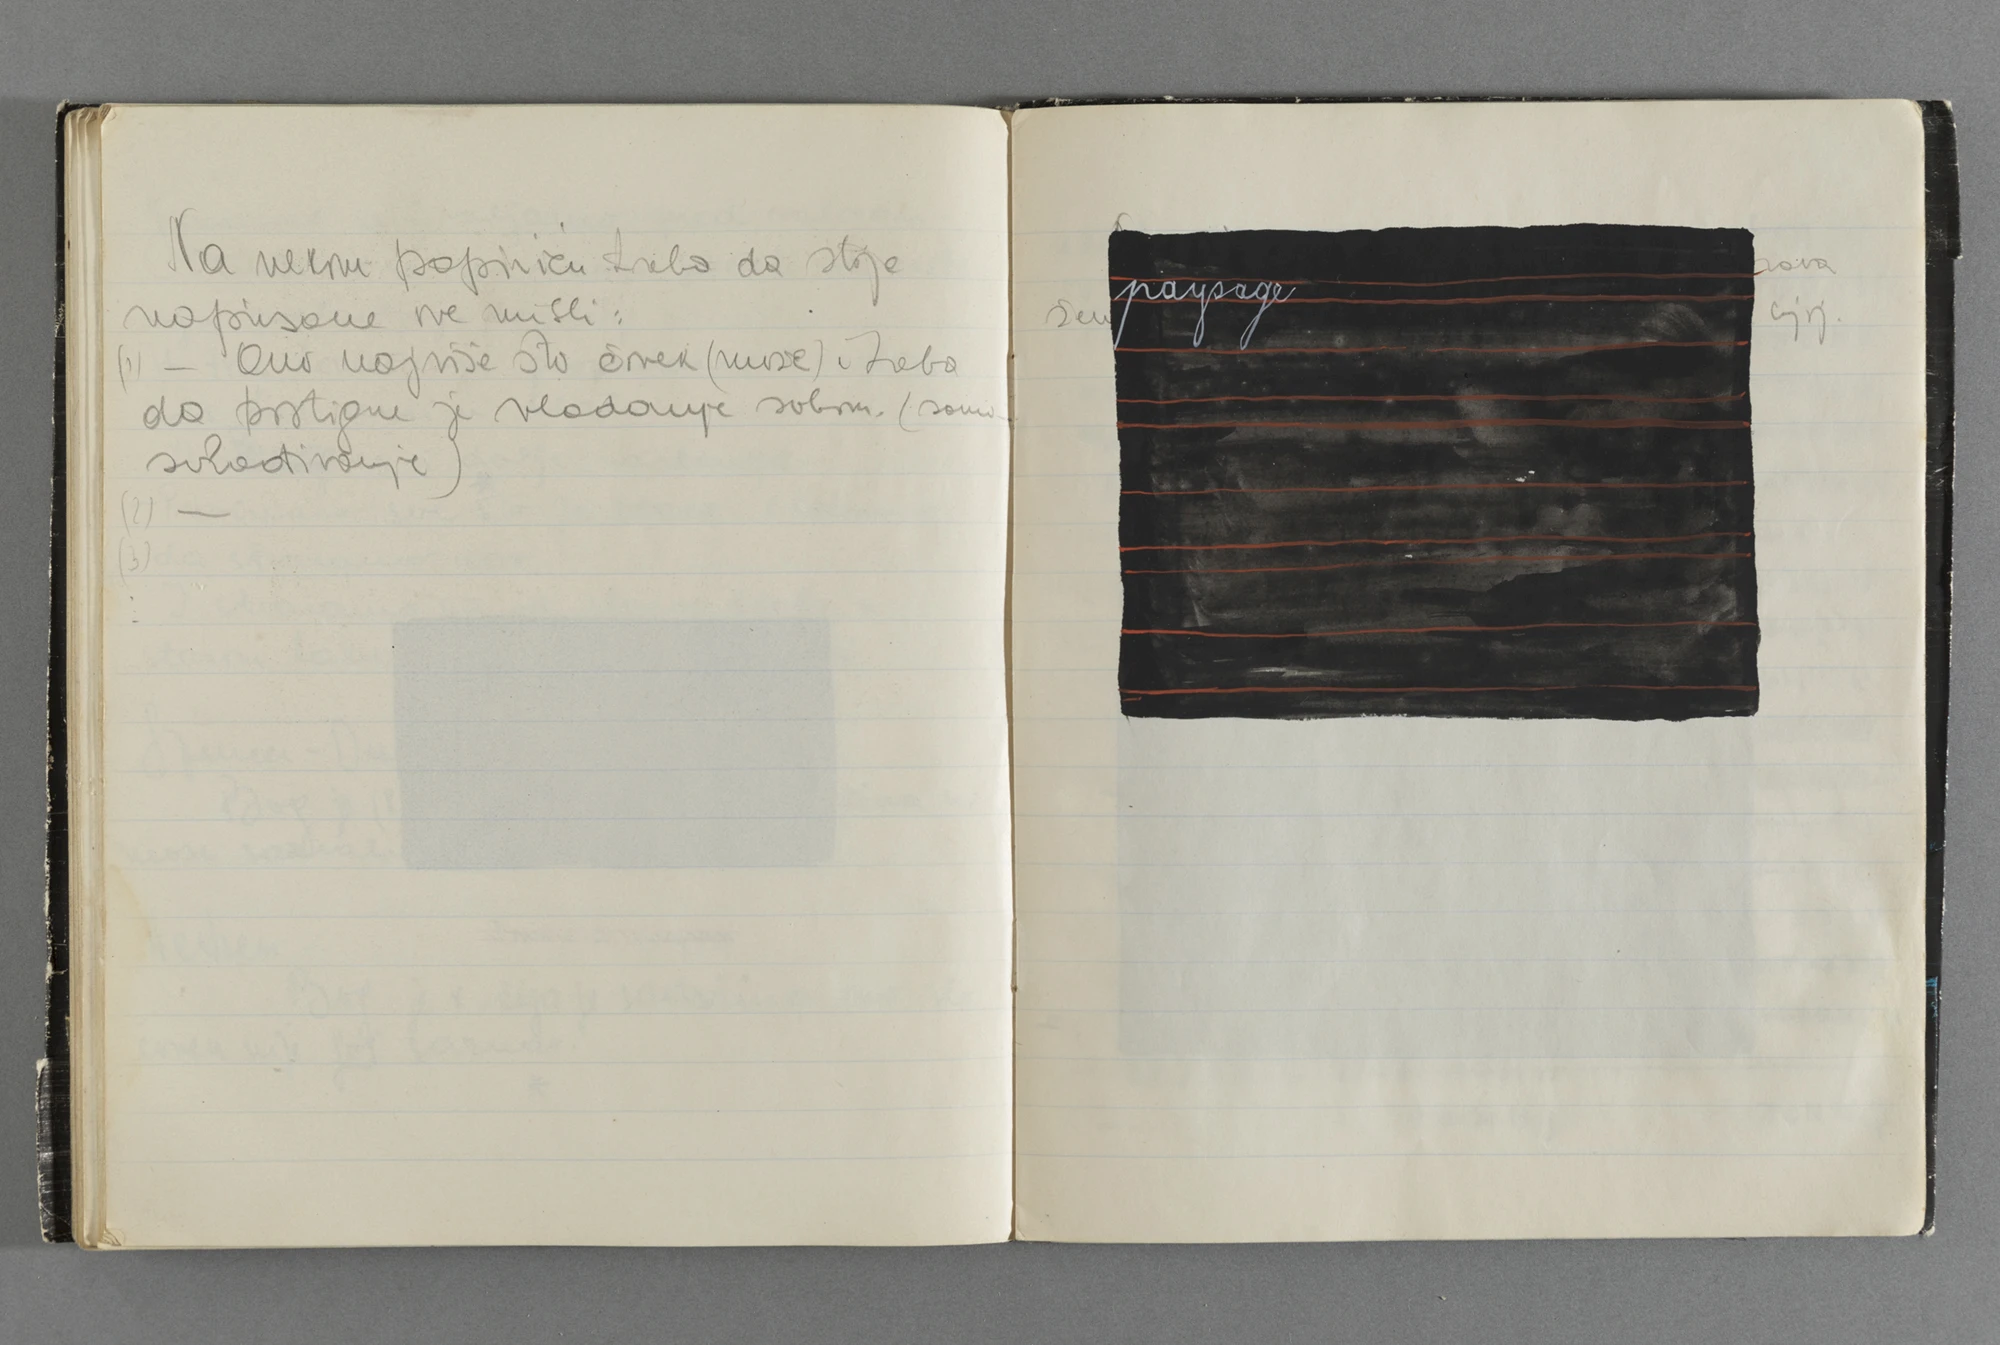 Na nekom papiriću treba da stoje
napisane sve misli:
(1) — Ono najviše što čovek (može) i treba
da postigne je vladanje sobom. (samo-
svladavanje)
(2) —
(3)
paysage